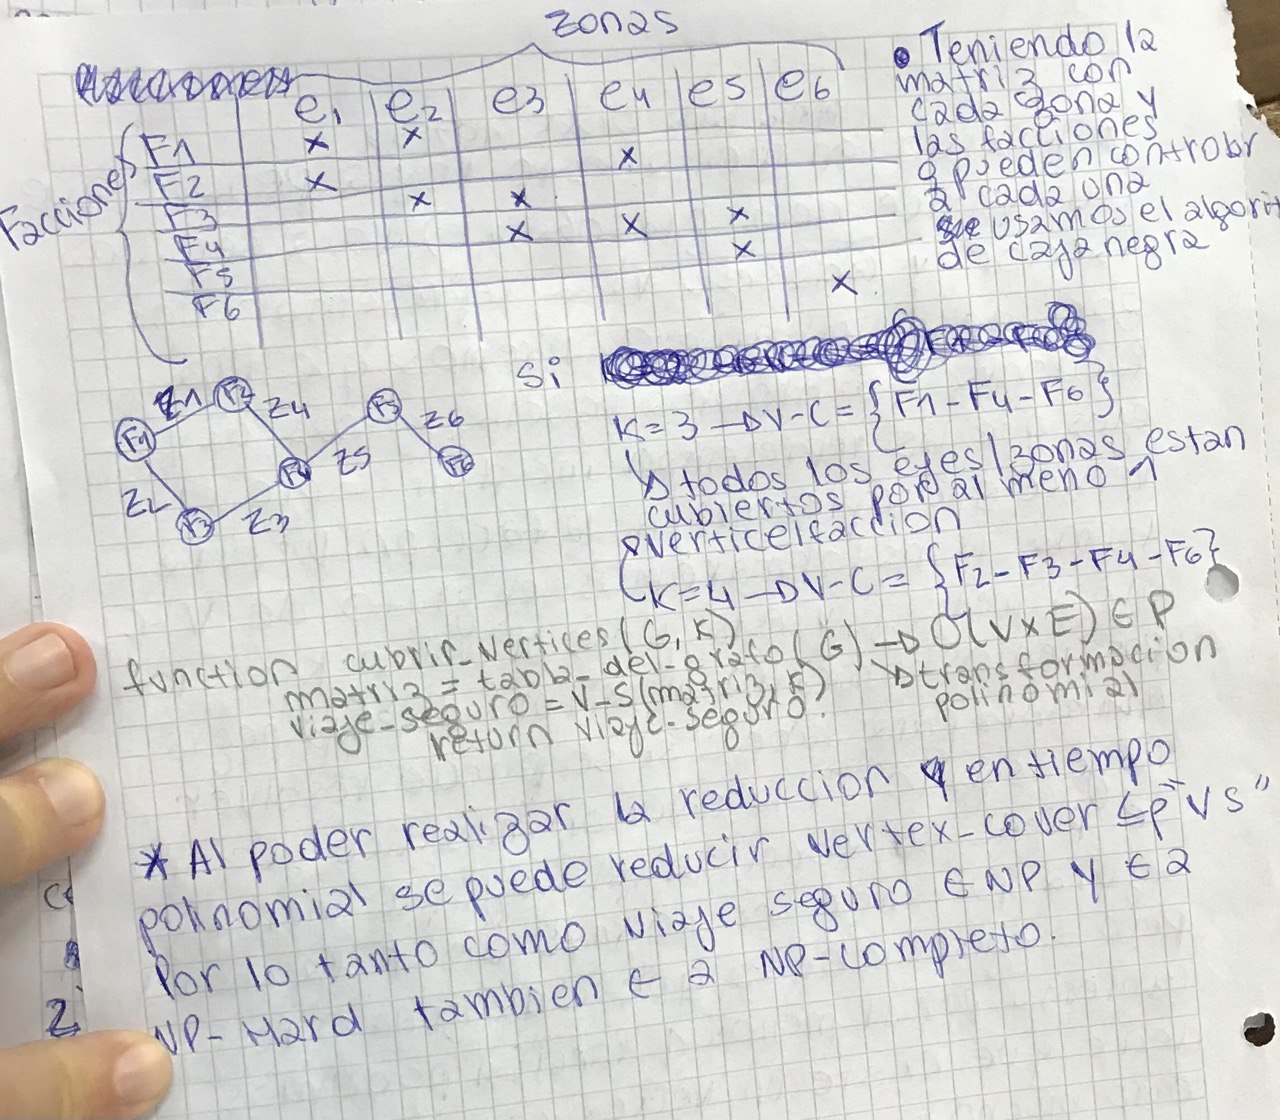 zonas
e1 e2 e3 e4 e5 e6
Facciones
F1 x x
F2 x x
F3 x x
F4 x x x
F5 x
F6 x
• Teniendo la
matriz con
cada zona y
las facciones
q pueden controlar
a cada una
usamos el algorit
de caja negra
Z1 F2 Z4 F5 Z6
F1 F4 Z5 F6
Z2 F3 Z3
Si
K=3 → V-C = {F1-F4-F6}
↳ todos los ejes/zonas estan
cubiertos por al meno 1
vertice/faccion
K=4 → V-C = {F2-F3-F4-F6}
function cubrir_vertices(G,K)
matriz = tabla_del_grafo(G) → O(V×E) ∈ P
viaje-seguro = V-S(matriz,K) ↳ transformacion
return viaje-seguro. polinomial
* Al poder realizar la reduccion en tiempo
polinomial se puede reducir vertex-cover ≤p "VS"
Por lo tanto como viaje seguro ∈ NP y ∈ a
NP-Hard tambien ∈ a NP-completo.
Z